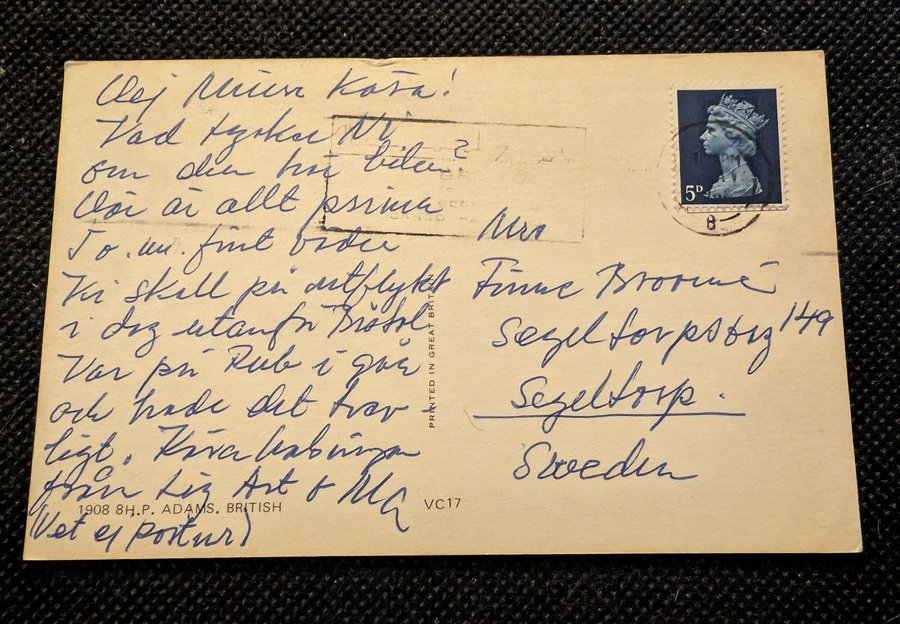 Hej Mina Kära!
Vad tycker Ni
om den här bilen?
Här är allt prima
T.o.m. fint väder
Vi skall på utflykt
i dag utanför Bristol
Var på Pub i går
och hade det trev-
ligt. Kära hälsningar
från Liz Art & Ma
(Vet ej portnr)
Mrs
Broomé
Segeltorpsväg 149
Segeltorp.
Sweden
5D
8
PRINTED IN GREAT BRITAIN
1908 8H.P. ADAMS. BRITISH
VC17